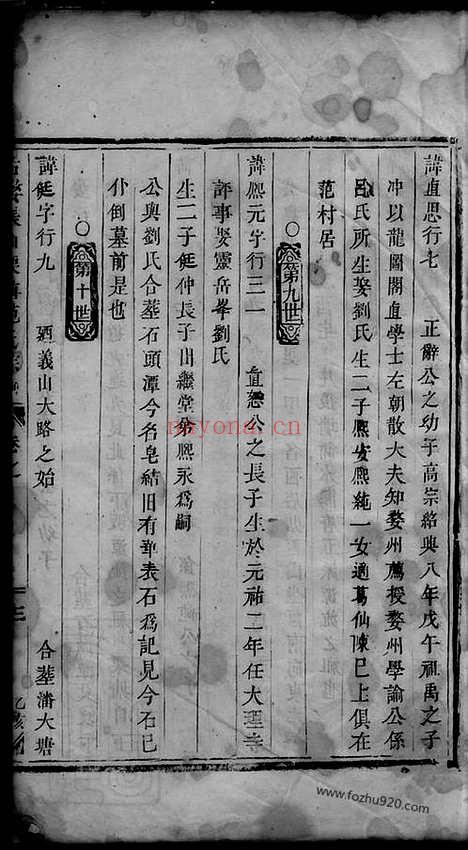 諱直思行七　正辭公之幼子高宗紹興八年戊午祖禹之子
冲以龍圖閣直學士左朝散大夫知婺州薦授婺州學諭公係
呂氏所生娶劉氏生二子熙安熙純一女適葛仙陳巳上俱在
范村居
○第九世
諱熙元字行三一　直恕公之長子生於元祐二年任大理寺
評事娶靈岳峯劉氏
生二子侹仲長子出繼堂弟熙永為嗣
公與劉氏合塟石頭潭今名皂結旧有華表石為記見今石已
仆倒墓前是也
○第十世
諱侹字行九　廼義山大略之始　合塟潘大塘
卷之
乙亥
nayona.cn
www.fozhu920.com